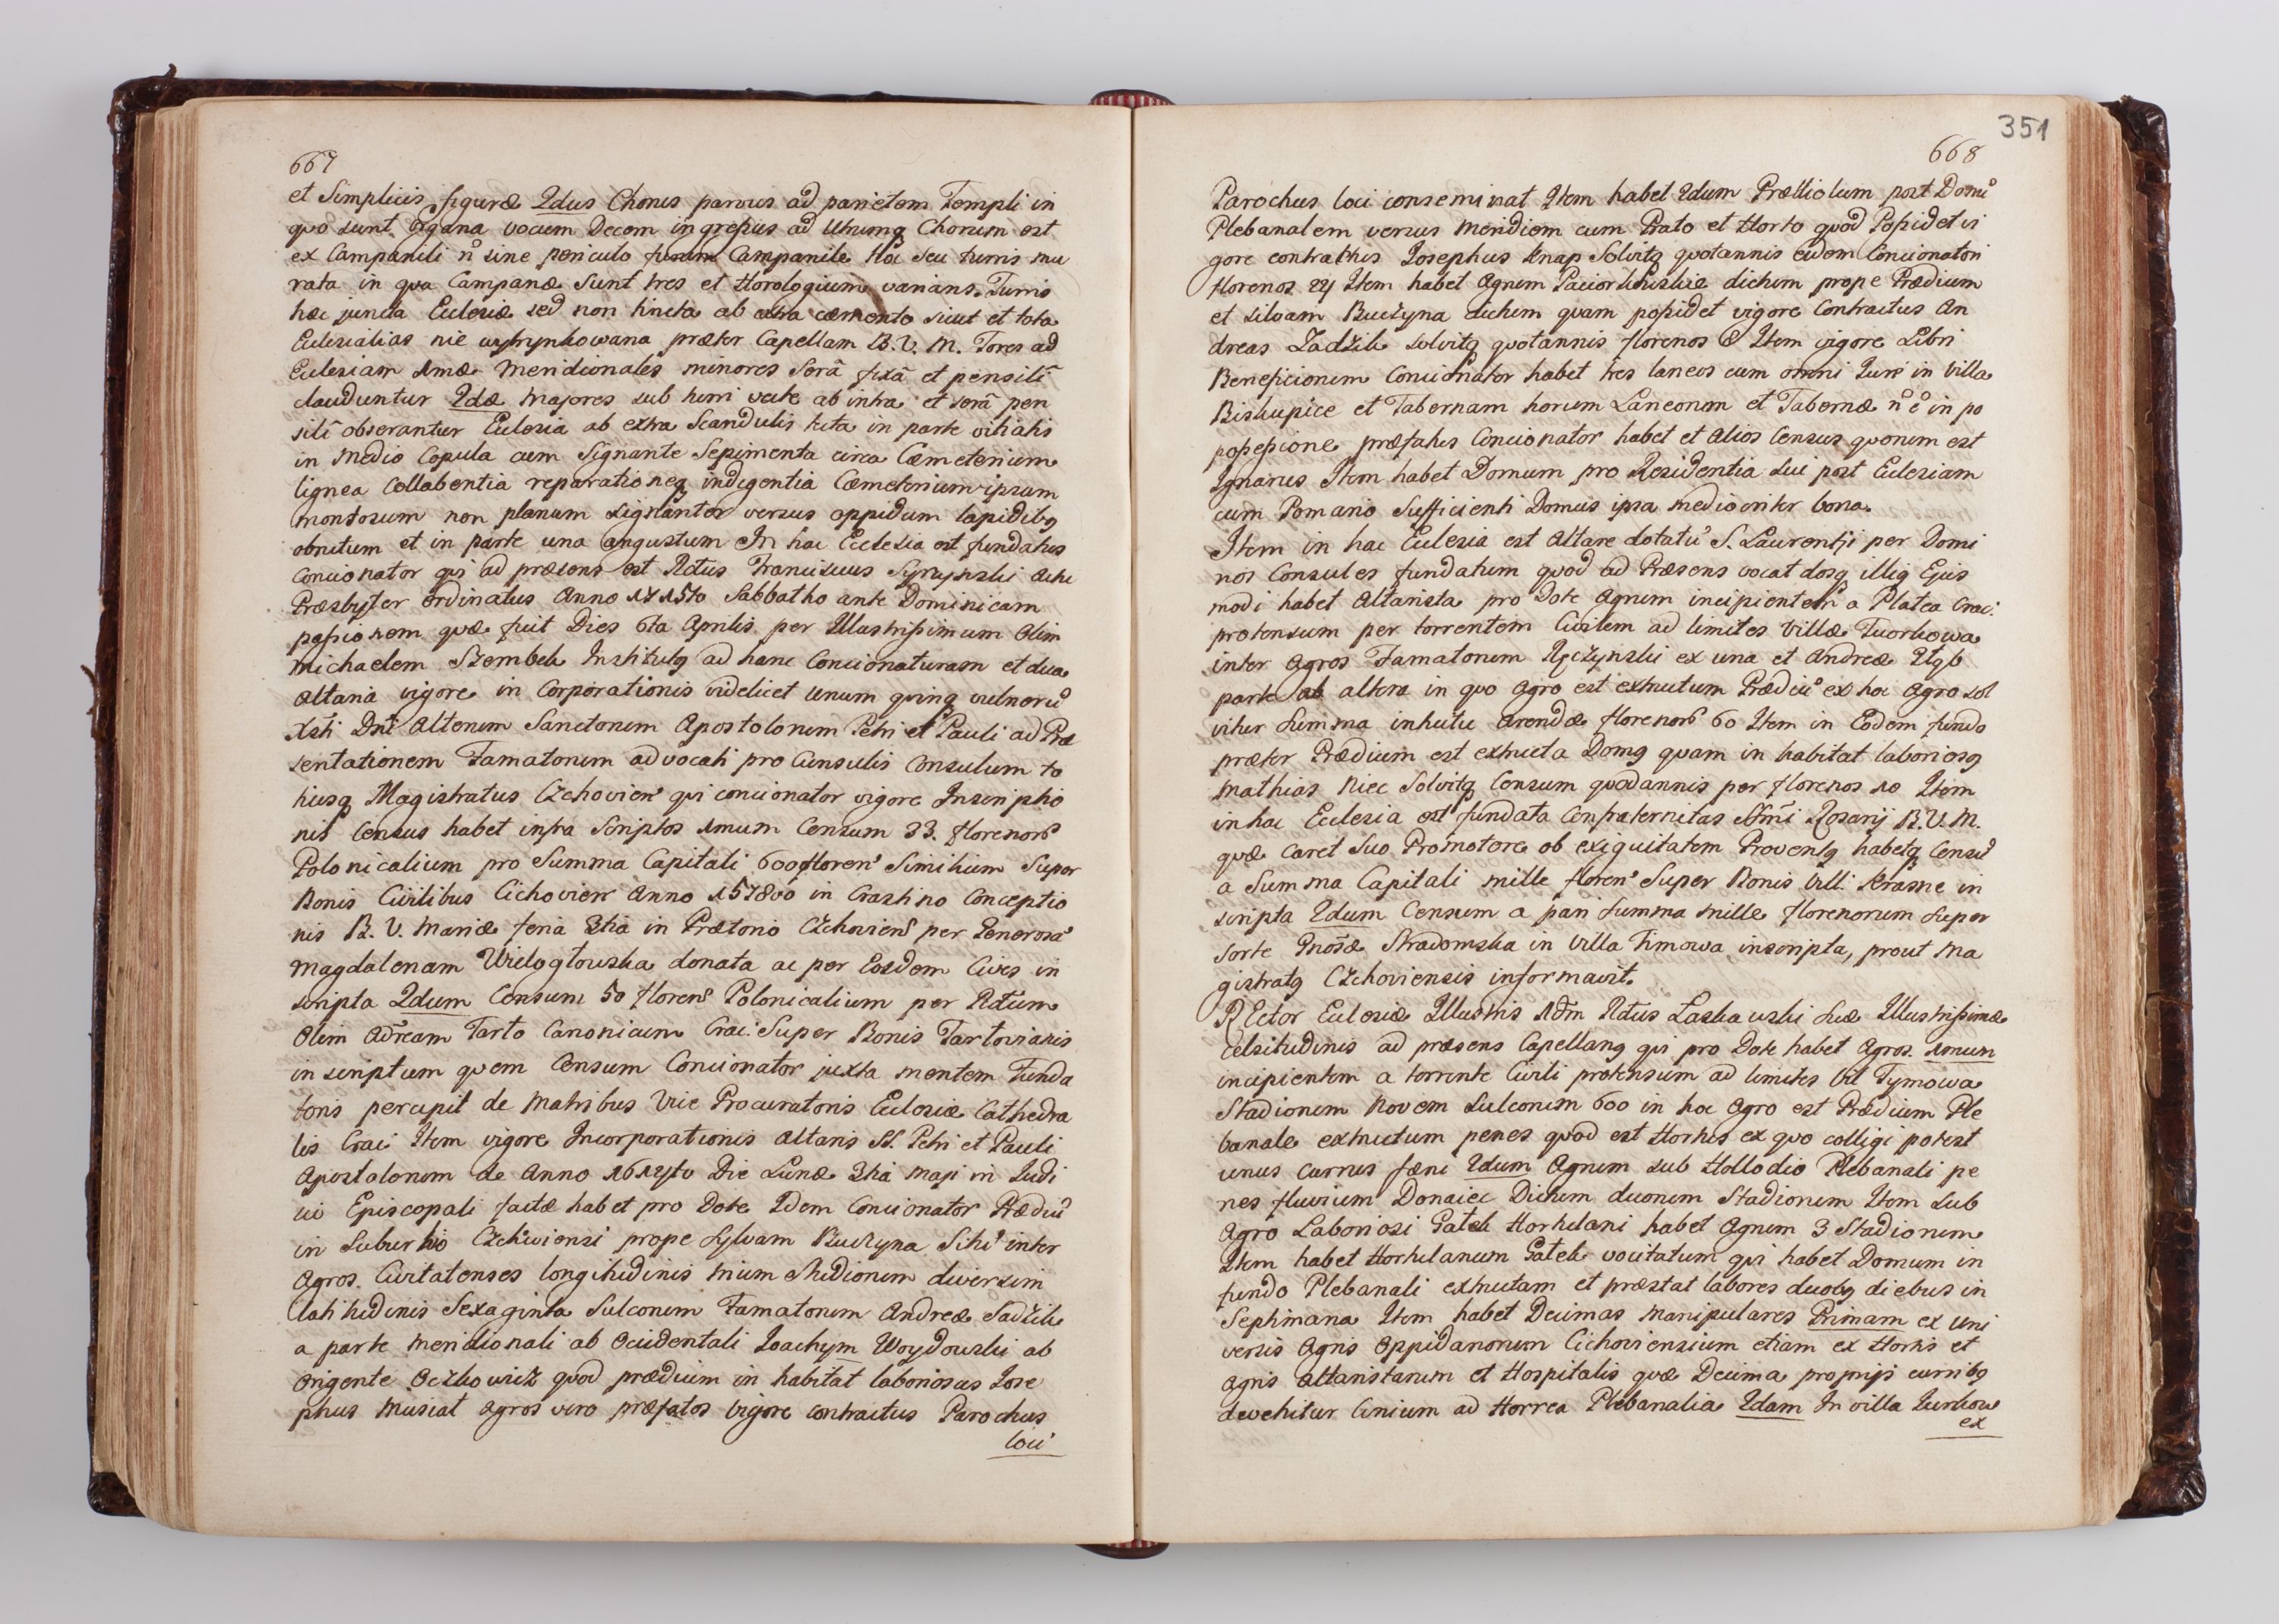 667
et Simplicis figuræ 2dus Chorus parvus ad parietem Templi in
quo sunt Organa vocum Decem ingressus ad Utrumq Chorum est
ex Campanili n̊ sine periculo Campanile Hoc seu turris mu
rata in qua Campanæ sunt tres et Horologium varians. Turris
hæc juncta Eclesiæ sed non tincta ab extra cæmento sicut et tota
Eclesia alias nie wytynkowana præter Capellam B. V. M. Fores ad
Eclesiam 1mæ Meridionales minores Serâ fixâ et pensili
clauduntur 2dæ Majores sub turri vecte ab intra et serâ pen
sili obserantur Eclesia ab extra Scandulis tecta in parte vitiatis
in Medio Copula cum Signante Sepimenta circa Cæmeterium
lignea Collabentia reparationeq indigentia Cæmeterium ipsum
montosum non planum signanter versus oppidum lapidibq
obrutum et in parte una angustum In hac Ecclesia est fundatus
Concionator qui ad præsens est Rdus Franciscus Syrynski Actu
Præsbyter ordinatus Anno 1715to Sabbatho ante Dominicam
passionem quæ fuit Dies 6ta Aprilis per Illustrissimum Olim
Michaelem Szembek Institutq ad hanc Concionaturam et dua
Altaria vigore in Corporationis videlicet unum quinq vulnerũ
Xsti Dni Alterum Sanctorum Apostolorum Petri et Pauli ad Præ
sentationem Famatorum advocati pro Consulis Consulum to
tiusq Magistratus Czchovien qui concionator vigore Inscriptio
nis Census habet infra scriptos 1mum Censum 33. florenors
Polonicalium pro Summa Capitali 600 floren Similium Super
Bonis Civilibus Cichovien Anno in Crastino Conceptio
nis B. V. Mariæ feria 3tia in Prætorio Czchoviens per Generosã
Magdalenam Wielogłowska donata ac per Eosdem Cives in
scripta 2dum Censum 50 florens Polonicalium per Rdum
Olim Adream Tarło Canonicum Crac: Super Bonis Tarłovianis
in scriptum quem Censum Concionator juxta mentem Funda
toris percipit de Manibus Vice Procuratoris Eclesiæ Cathedra
lis Crac: Item vigore Incorporationis Altaris SS. Petri et Pauli
Apostolorum de Anno Die Lunæ 3tia Maji in Judi
cio Episcopali factæ habet pro Dote Idem Concionator Prædiũ
in Suburbio Czchoviensi prope Sylvam Buczyna Sitũ inter
Agros Civitatenses longitudinis trium Studiorum diversim
latitudinis Sexaginta Sulcorum Famatorum Andreæ Sadzik
a parte meridionali ab Occidentali Joachym Woydowski ab
Origente Oczkowicz quod prædium in habitat laboriosus Jose
phus Musiał Agros vero præfatos vigore contractus Parochus
loci
351
668
Parochus loci conseminat Item habet 2dum Prættiolum post Domũ
Plebanalem versus meridiem cum Prato et Horto quod Possidet vi
gore contractus Josephus Knap Solvitq quotannis eidem Concionatori
florenos 24 Item habet Agrum dictum prope Prædium
et silvam Buczyna dictum quam possidet vigore Contractus An
dreas Zadzik solvitq quotannis florenos 6 Item vigore Libri
Beneficiorum Concionator habet tres laneos cum omni Jure in Villa
Biskupice et Tabernam horum Laneorum et Tabernæ n̊ ẽ in po
possessione præfatus Concionator habet et Alios Census quorum est
Ignarus Item habet Domum pro Residentia sui post Eclesiam
cum Pomario Sufficienti Domus ipsa mediocriter bona.
Item in hac Eclesia est Altare dotatũ S. Laurentji per Domi
nos Consules fundatum quod ad Præsens vocat dosq illiq Ejus
modi habet Altarista pro Dote Agrum incipientem a Platea Crac:
protensum per torrentem Civilem ad limites Villæ Tworkowa
inter Agros Famatorum Ręczynski ex una et Andreæ
parte ab altera in quo Agro est extructum Prædiũ ex hoc Agro sol
vitur Summa intuitu Arendæ florenors 60 Item in Eodem fundo
præter Prædium est extructa Domq quam in habitat laboriosq
Mathias Niec Solvitq Censum quodannis per florenos 10 Item
in hac Ecclesia est fundata Confraternitas SSmi Rosarij B. V. M.
quæ Caret Suo Promotore ob exiguitatem Proventq habetq Censũ
a Summa Capitali mille floren Super Bonis Vill: Krasne in
scripta 2dum Censum a pari summa mille florenorum super
sorte Gnosæ Stradomska in Villa Timowa inscripta, prout Ma
gistratq Czchoviensis informavit.
REctor Eclesiæ Illustris Adm Rdus Łaskawski Suæ Illustrissimæ
Celsitudinis ad præsens Capellanq qui pro Dote habet Agros. 1mum
incipientem a torrente Civili protensum ad limites Vil Tymowa
Stadiorum Novem Sulcorum 600 in hoc Agro est Prædium Ple
banale extructum penes quod est Hortus ex quo colligi potest
unus Currus fæni 2dum Agrum sub Hollodio Plebanali pe
nes fluvium Donaiec Dictum duorum Stadiorum Item sub
Agro Laboriosi Gatek Hortulani habet Agrum 3 Stadiorum
Item habet Hortulanum Gatek vocitatum qui habet Domum in
fundo Plebanali extructam et præstat labores duobq diebus in
Septimana Item habet Decimas Manipulares Primam ex Uni
versis Agris Oppidanorum Cichoviensium etiam ex Hortis et
Agris Altaristarum et Hospitalis quæ Decima proprijs curribq
devehitur Civium ad Horrea Plebanalia 2dam In villa Jurkow
ex